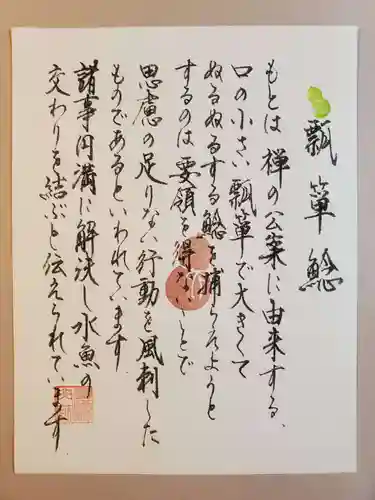 瓢箪鯰
もとは禅の公案に由来する、
口の小さい瓢箪で大きくて
ぬるぬるする鯰を捕らえようと
するのは要領を得ないことで
思慮の足りない行動を風刺した
ものであるといわれています
諸事円満に解決し水魚の
交わりを結ぶと伝えられています